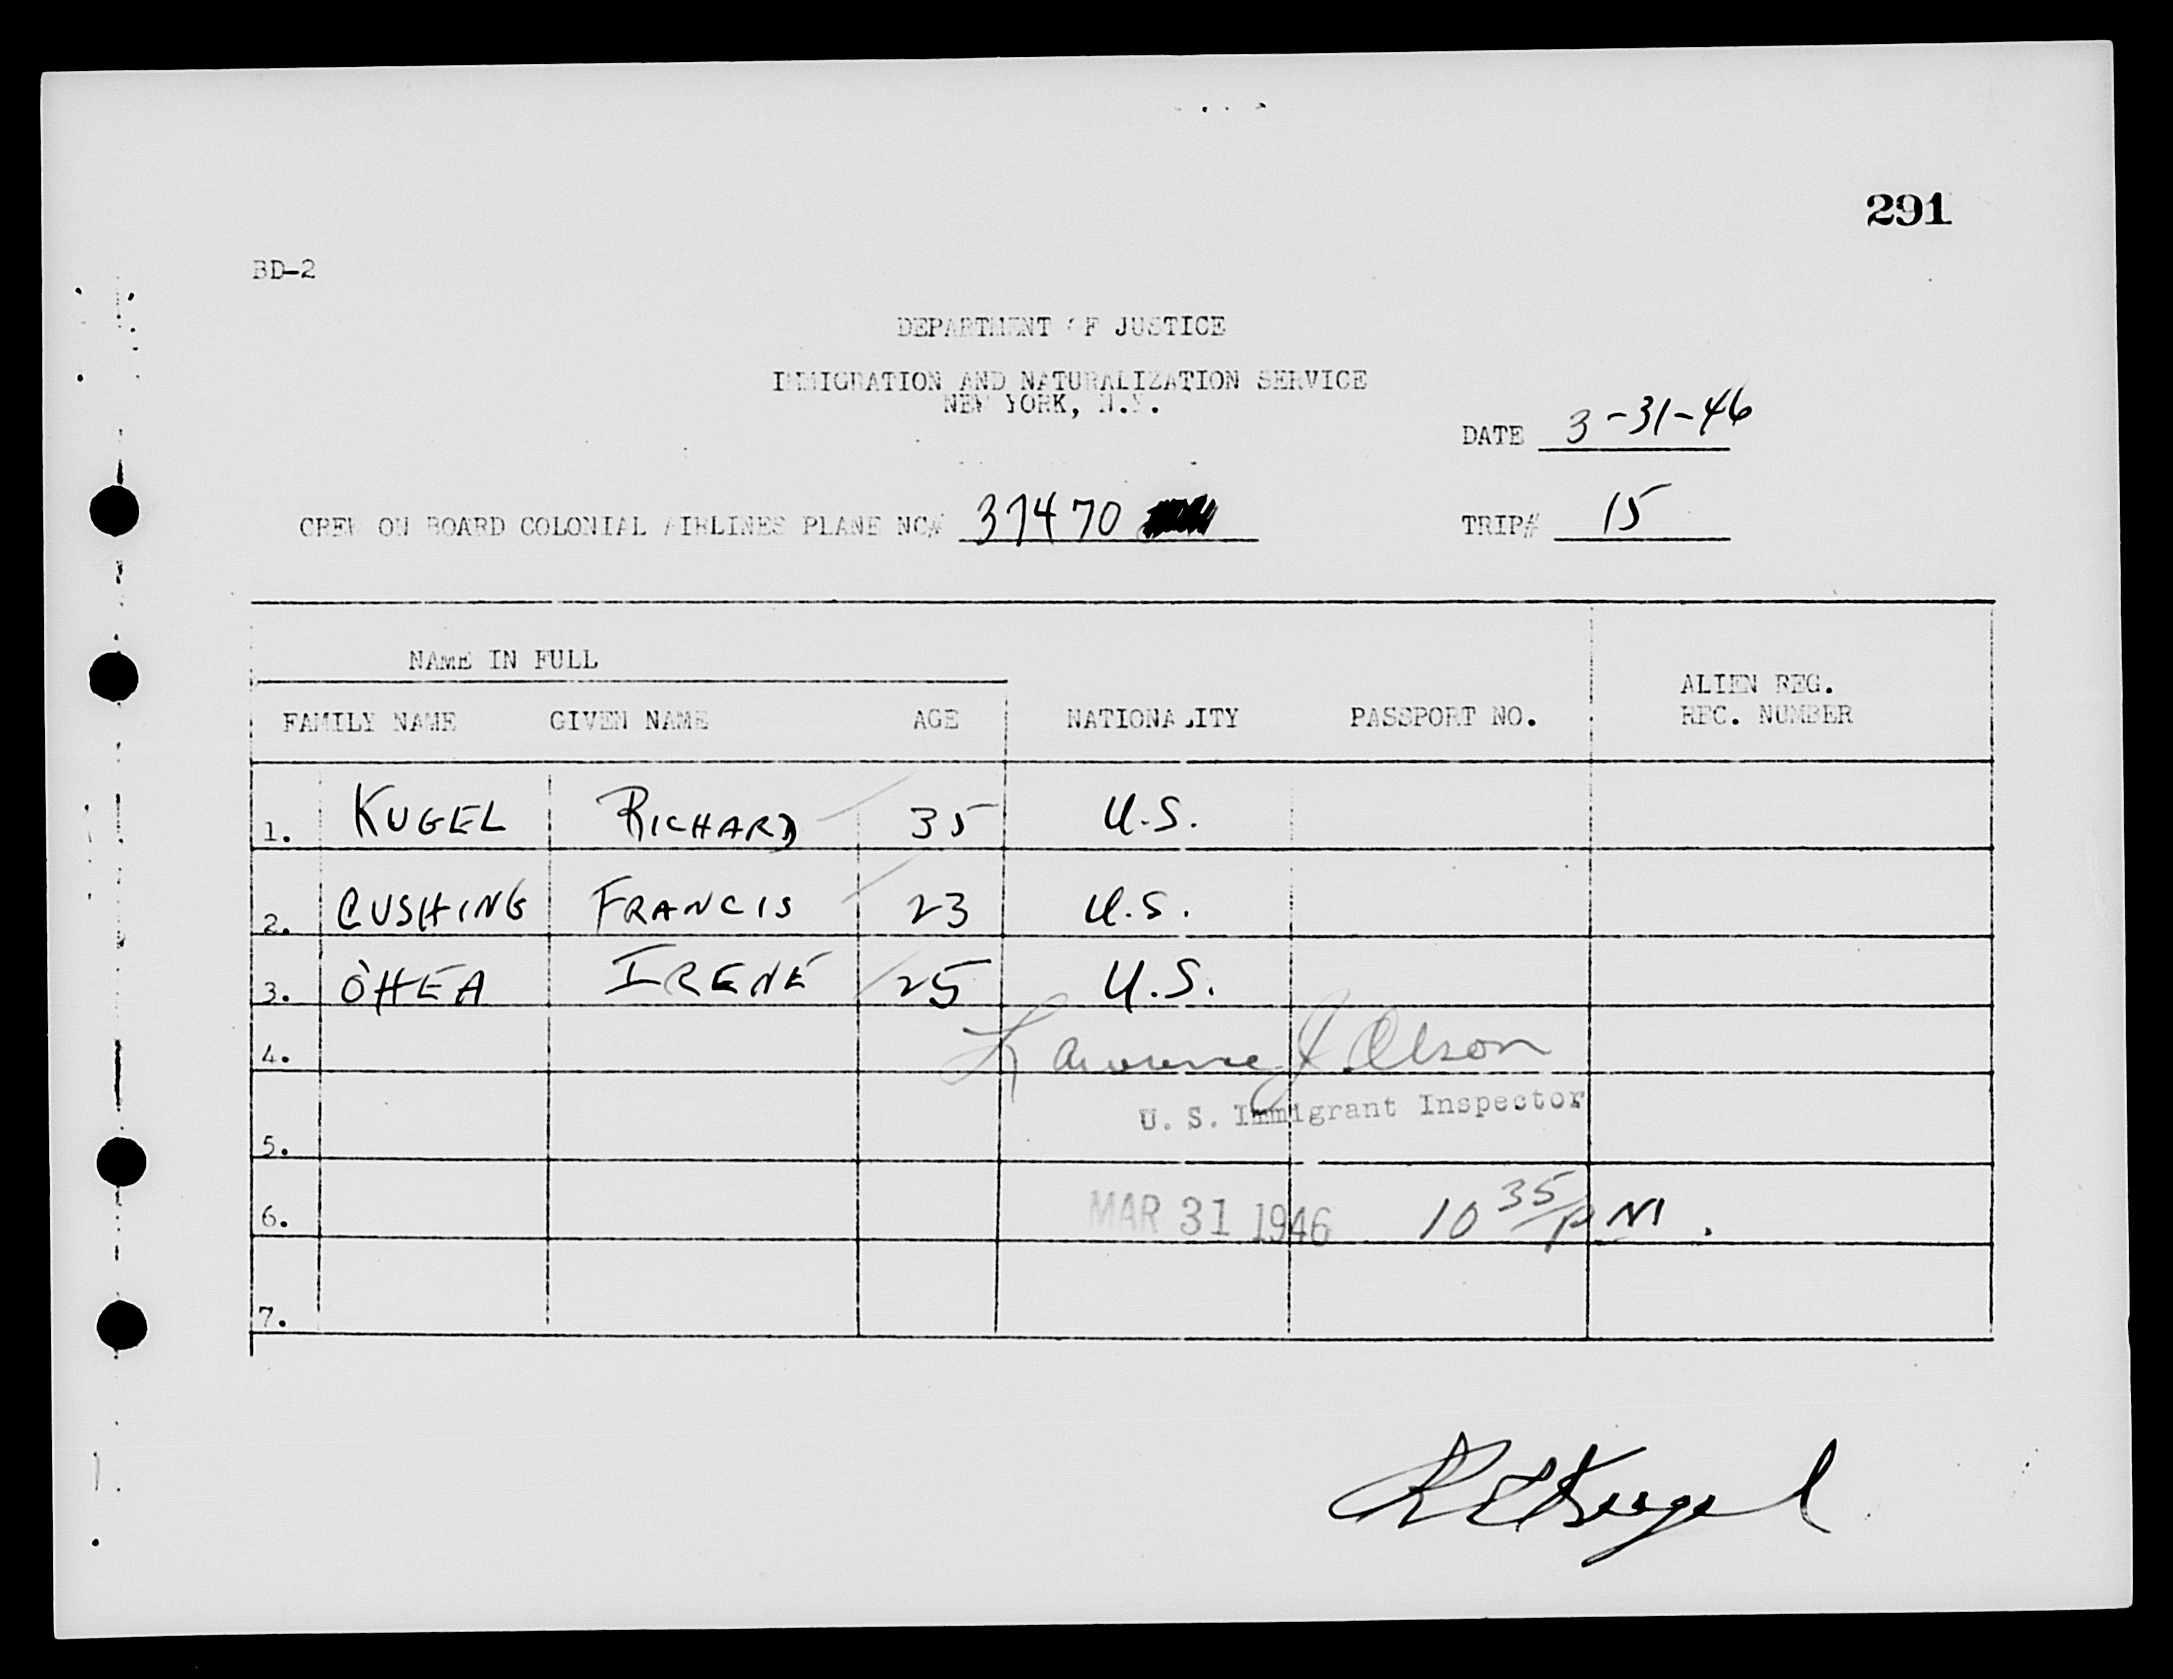 291
BD-2
DEPARTMENT OF JUSTICE
IMMIGRATION AND NATURALIZATION SERVICE
NEW YORK, N.Y.
DATE 3-31-46
CREW ON BOARD COLONIAL AIRLINES PLANE NC# 37470
TRIP# 15
NAME IN FULL
FAMILY NAME GIVEN NAME AGE NATIONALITY PASSPORT NO. ALIEN REG. REC. NUMBER
1. KUGEL RICHARD 35 U.S.
2. CUSHING FRANCIS 23 U.S.
3. O'HEA IRENE 25 U.S.
Lawrence J. Olson
4.
U. S. Immigrant Inspector
5.
6. MAR 31 1946 10 35/PM.
7.
R E Kugel